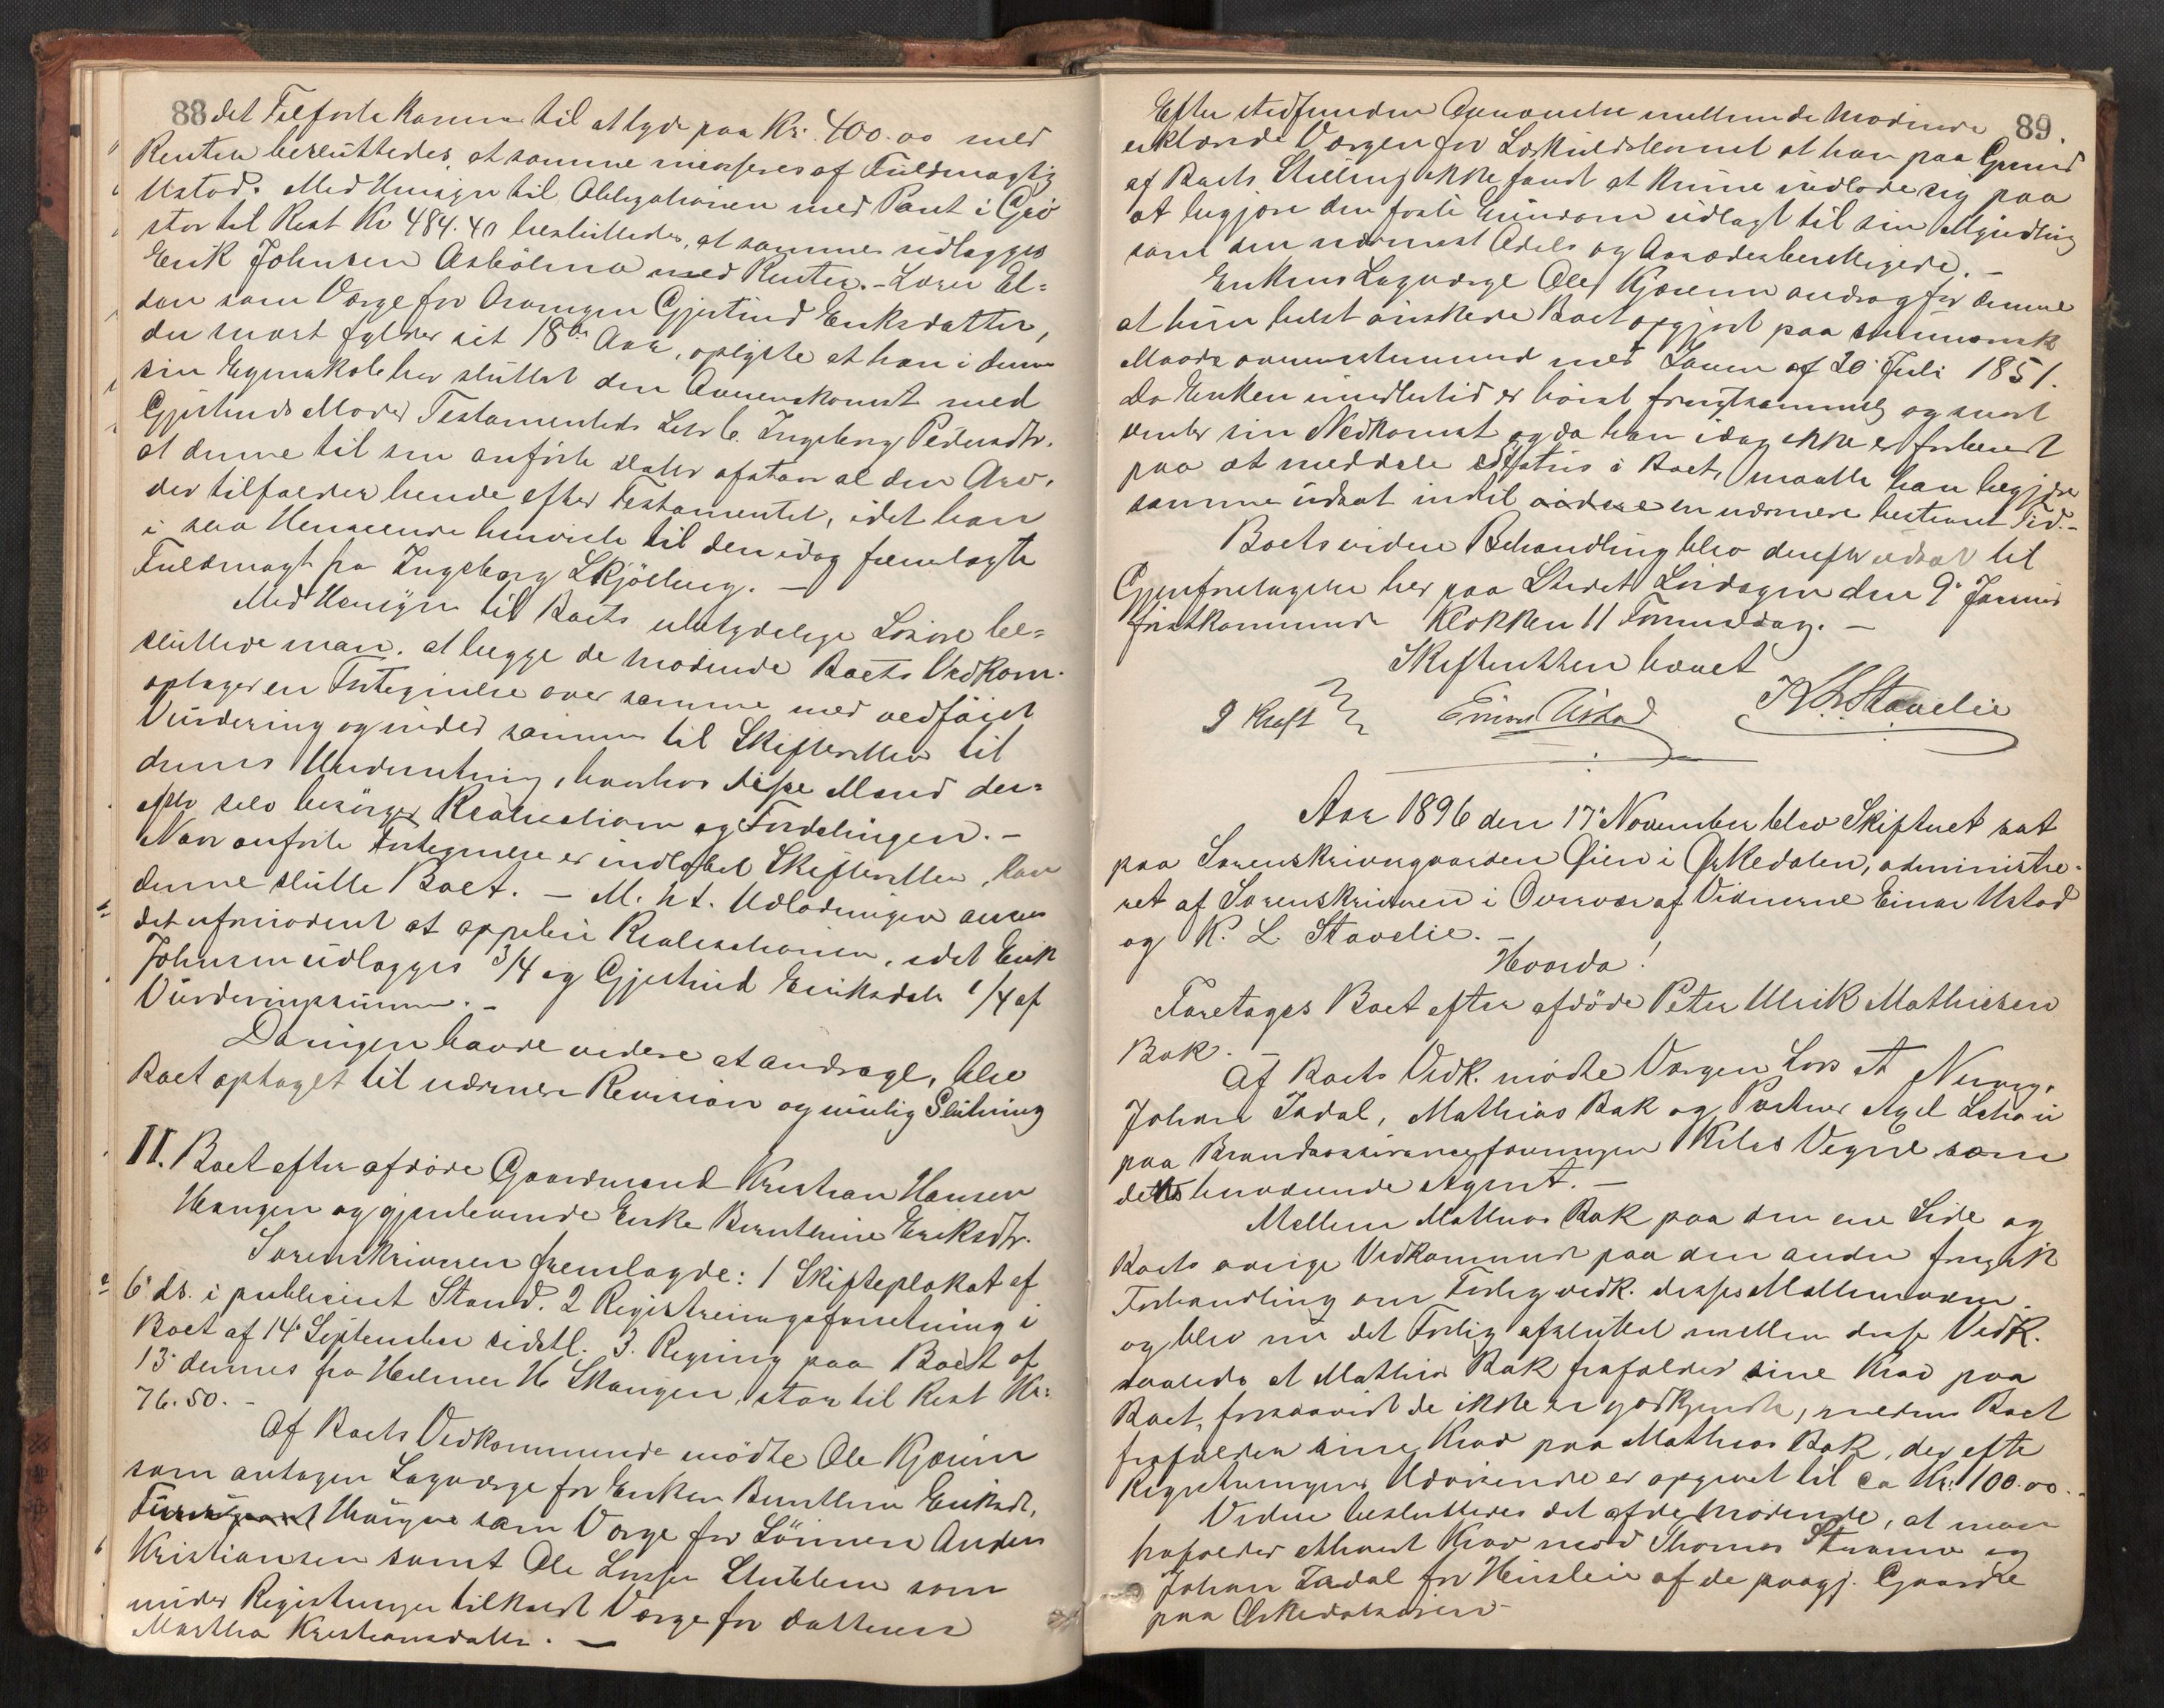 88
det Tilførte kommer til at lyde paa Kr. 400.00 med
Renter besluttedes at samme incasseres af Fuldmægtig
Ustad. Med Hensyn til Obligationen med Pant i Grø
stor til Rest Kr 484.40 besluttedes, at samme udlægges
Erik Johnsen Asbølmo med Renter. – Lars El-
dan som Værge for Arvingen Gjertrud Eriksdatter,
der snart fylder sit 18de Aar, oplyste at han i denne
sin Egenskab har sluttet den Overenskomst med
Gjertruds Moder Testamentets Litr b. Ingeborg Pedersdtr.
at denne til sin anførte Datter afstaar al den Arv,
der tilfalder hende efter Testamentet, idet han
i saa Henseende henviste til den idag fremlagte
Fuldmagt fra Ingeborg Skjølberg. –
Med Hensyn til Boets ubetydelige Løsøre be-
sluttede man, at begge de mødende Boets Vedkom.
optager en Fortegnelse over samme med vedføiet
Vurdering og sender samme til Skifteretten til
dennes Underretning, hvorhos disse Mænd der-
efter selv besørger Realisationen og Fordelingen. –
Naar anførte Fortegnelse er indløbet Skifteretten, kan
denne slutte Boet. – M. h. t. Udlodningen ansees
det ufornødent at oppebie Realisationen, idet Erik
Johnsen udlægges 3/4 og Gjertrud Eriksdatr 1/4 af
Vurderingssummen. –
Da ingen havde videre at andrage, blev
Boet optaget til nærmere Revision og mulig Slutning
II. Boet efter afdøde Gaardmand Kristian Hansen
Haugen og gjenlevende Enke Bernthine Eriksdtr.
Sorenskriveren fremlagde: 1 Skifteplakat af
6 ds. i publiceret Stand. 2 Registreringsforretning i
Boet af 14 September sidstl. 3. Regning paa Boet af
13 dennes fra Helmer H Skaugen, stor til Rest Kr.
76.50. –
Af Boets Vedkommende mødte Ole Kjøren
som antagen Lagværge for Enken Bernthine Eriksdr,
Haugen som Værge for Sønnen Anders
Kristiansen samt Ole Larsen Stubben som
under Registreringen tilkaldt Værge for Datteren
Martha Kristiansdatter. –
89.
Efter stedfunden Overveielse mellem de Mødende
erklærede Værgen for at han paa Grund
af Boets Stilling ikke fandt at kunne indlade sig paa
at begjære den faste Eiendom udlagt til sin Myndling
som den nærmest Odels og Aasædesberettigede. –
Enkens Lagværge Ole Kjøren androg for denne
at hun helst ønskede Boet opgjort paa summarisk
Maade overensstemmende med Loven af 20 Juli 1851.
Da Enken imidlertid er høist frugtsommelig og snart
venter sin Nedkomst og da han idag ikke er forberedt
paa at meddele Status i Boet, maatte han begjære
samme udsat indtil videre en nærmere bestemt Tid. –
Boets videre Behandling blev derefter udsat til
Gjenforetagelse her paa Stedet Lørdagen den 9 Januar
førstkommende Klokken 11 Formiddag. –
Skifteretten hævet
J Kraft Einar Ustad K L Stavelie
Aar 1896 den 17 November blev Skifteret sat
paa Sorenskrivergaarden Øien i Ørkedalen, administre-
ret af Sorenskriveren i Overvær af Vidnerne Einar Ustad
og K. L Stavelie. –
Hvorda!
Foretoges Boet efter afdøde Peter Ulrik Mathiesen
Bak. –
Af Boets Vedk. mødte Værgen Lars A
Johan Indal, Mathias Bak og Partner Axel Schou
paa Brandassuranceforeningen Kilds Vegne som
dettes herværende Agent. –
Mellem Mathias Bak paa den ene Side og
Boets øvrige Vedkommende paa den anden foregik
Forhandling om Forlig vedk. disses Mellemværen
og blev nu det Forlig afsluttet mellem disse Vedk.
saaledes at Mathias Bak frafalder sine Krav paa
Boet, forsaavidt de ikke er godkjendte, medens Boet
frafalder sine Krav paa Mathias Bak, der efter
Registreringens Udvisende er opgivet til ca Kr. 100.00.
Videre besluttedes det af de Mødende, at man
frafalder ethvert Krav mod Thomas og
Johan Indal for Husleie af de paagj. Gaarde
paa Ørkedalsøren